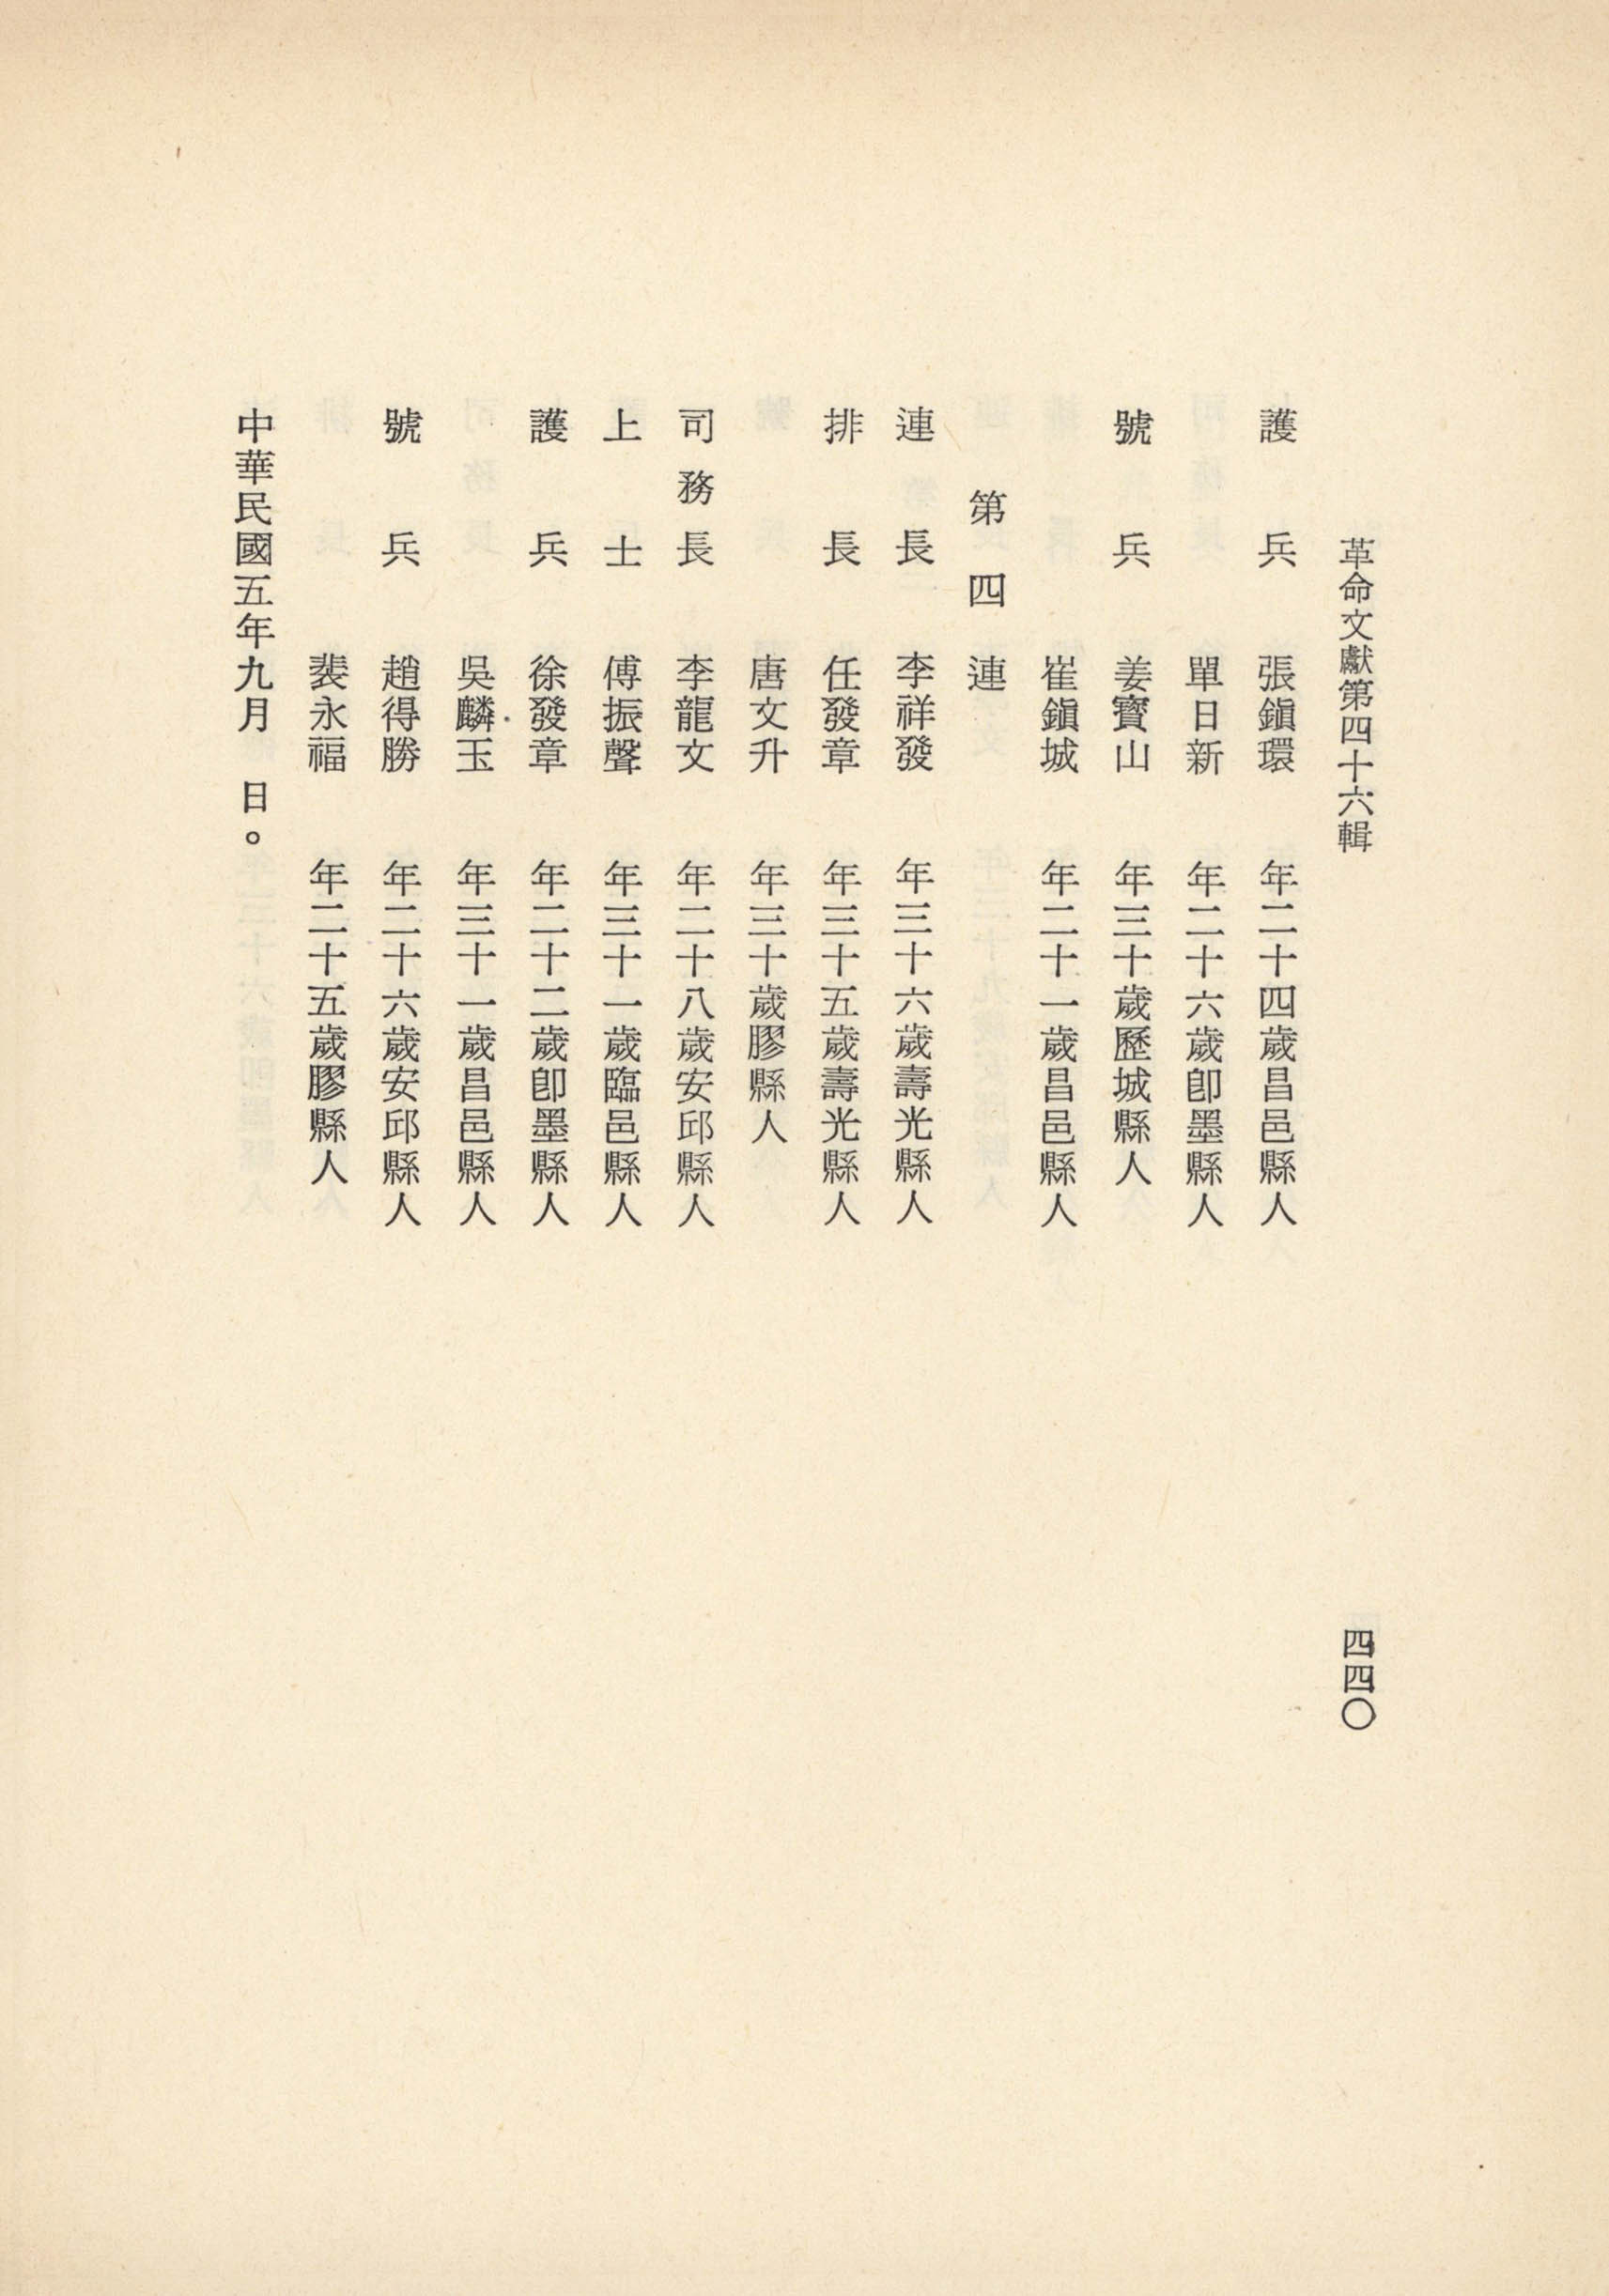 革命文獻第四十六輯
四四〇
護兵 張鎭環 年二十四歲昌邑縣人
單日新 年二十六歲卽墨縣人
號兵 姜寶山 年三十歲歷城縣人
崔鎭城 年二十一歲昌邑縣人
第四連
連長 李祥發 年三十六歲壽光縣人
排長 任發章 年三十五歲壽光縣人
唐文升 年三十歲膠縣人
司務長 李龍文 年二十八歲安邱縣人
上士 傅振聲 年三十一歲臨邑縣人
護兵 徐發章 年二十二歲卽墨縣人
吳麟玉 年三十一歲昌邑縣人
號兵 趙得勝 年二十六歲安邱縣人
裴永福 年二十五歲膠縣人
中華民國五年九月 日。